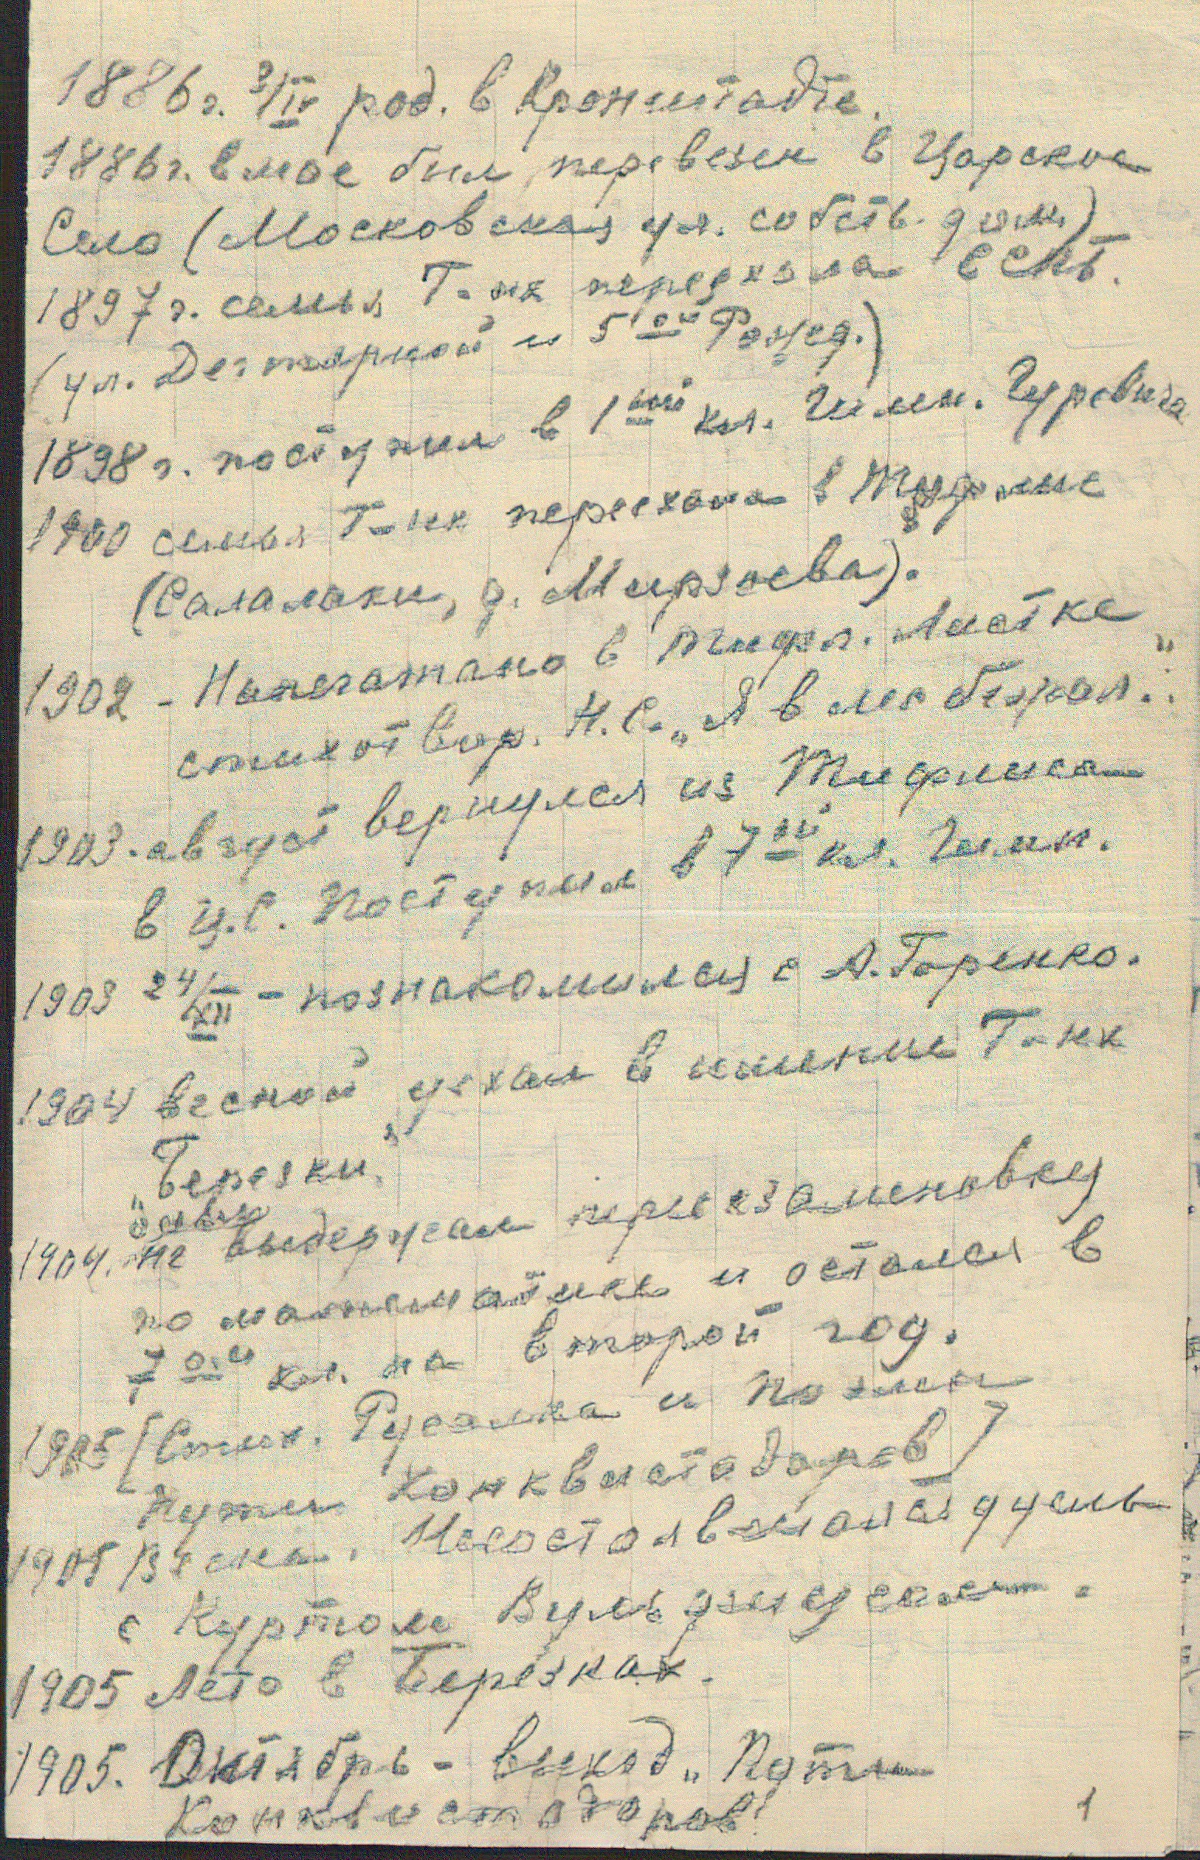 1886 г. 3/IV род. в Кронштадте.
1886 г. в мае был перевезен в Царское
Село (Московская ул. собств. дом)
1897 г. семья Г-их переехала в СПб.
(ул. Дегтярной и 5ой Рожд.)
1898 г. поступил в 1ый кл. Гимн. Гуревича
1900 семья Г-их переехала в Тифлис
(Сололаки, д. Мирзоева).
1902 - Напечатано в Тифл. Листке
стихотвор. Н.С. „Я в лес бежал..."
1903. август вернулся из Тифлиса
в Ц.С. Поступил в 7ой кл. Гимн.
1903 24/XII - познакомился с А. Горенко.
1904 весной уехал в имение Г-их
„Березки".
1904. Не выдержал переэкзаменовку
по математике и остался в
7ом кл. на второй год.
1905 [Стих. Русалка и поэмы
Пути Конквистадоров]
1905 Весна. Несостоявшаяся дуэль
с Куртом Вульфиусом.
1905 Лето в Березках.
1905. Октябрь - выход „Пути
Конквистадоров"
1